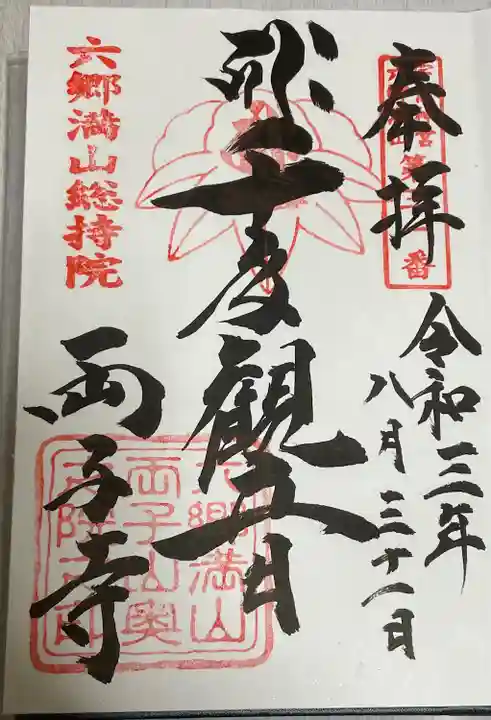 奉拝
第
番
令和三年
八月三十一日
千手観音
六郷満山総持院
両子寺
六郷満山
両子山奥